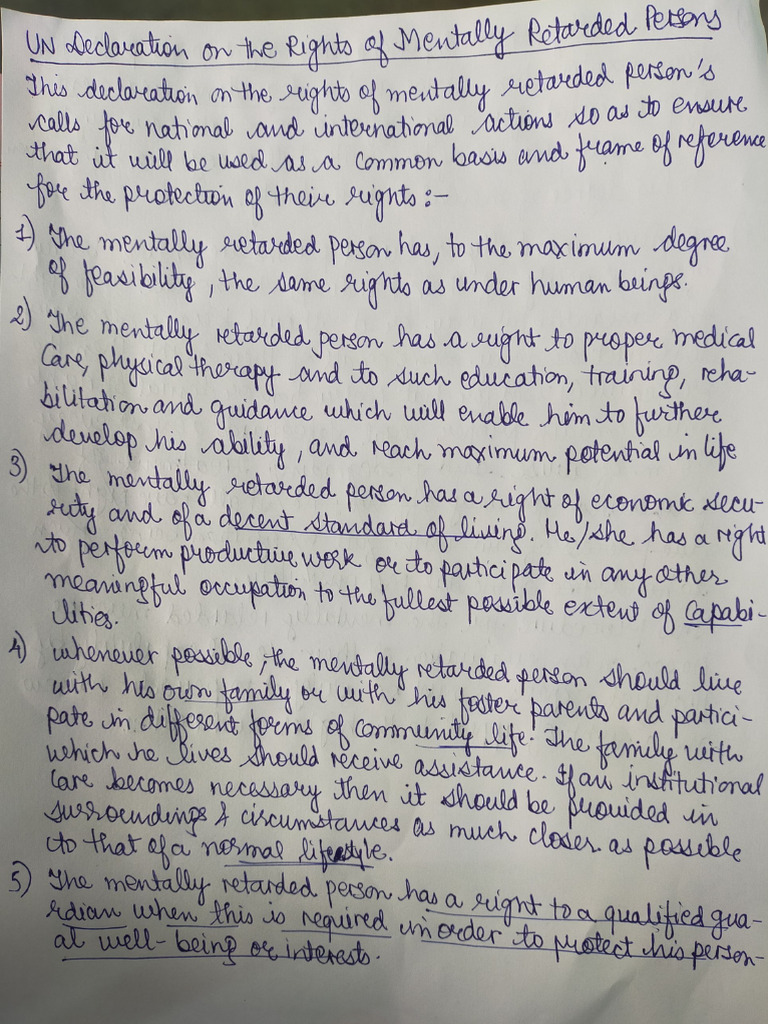 UN Declaration on the Rights of Mentally Retarded Persons
This declaration on the rights of mentally retarded person's
calls for national and international actions so as to ensure
that it will be used as a common basis and frame of reference
for the protection of their rights :-
1) The mentally retarded person has, to the maximum degree
of feasibility, the same rights as under human beings.
2) The mentally retarded person has a right to proper medical
Care, physical therapy and to such education, training, reha-
bilitation and guidance which will enable him to further
develop his ability, and reach maximum potential in life
3) The mentally retarded person has a right of economic secu-
rity and of a decent standard of living. He/she has a right
to perform productive work or to participate in any other
meaningful occupation to the fullest possible extent of capabi-
lities.
4) whenever possible, the mentally retarded person should live
with his own family or with his foster parents and partici-
pate in different forms of community life. The family with
which he lives should receive assistance. If an institutional
care becomes necessary then it should be provided in
surroundings & circumstances as much closer as possible
to that of a normal lifestyle.
5) The mentally retarded person has a right to a qualified gua-
rdian when this is required in order to protect his person-
al well-being or interests.